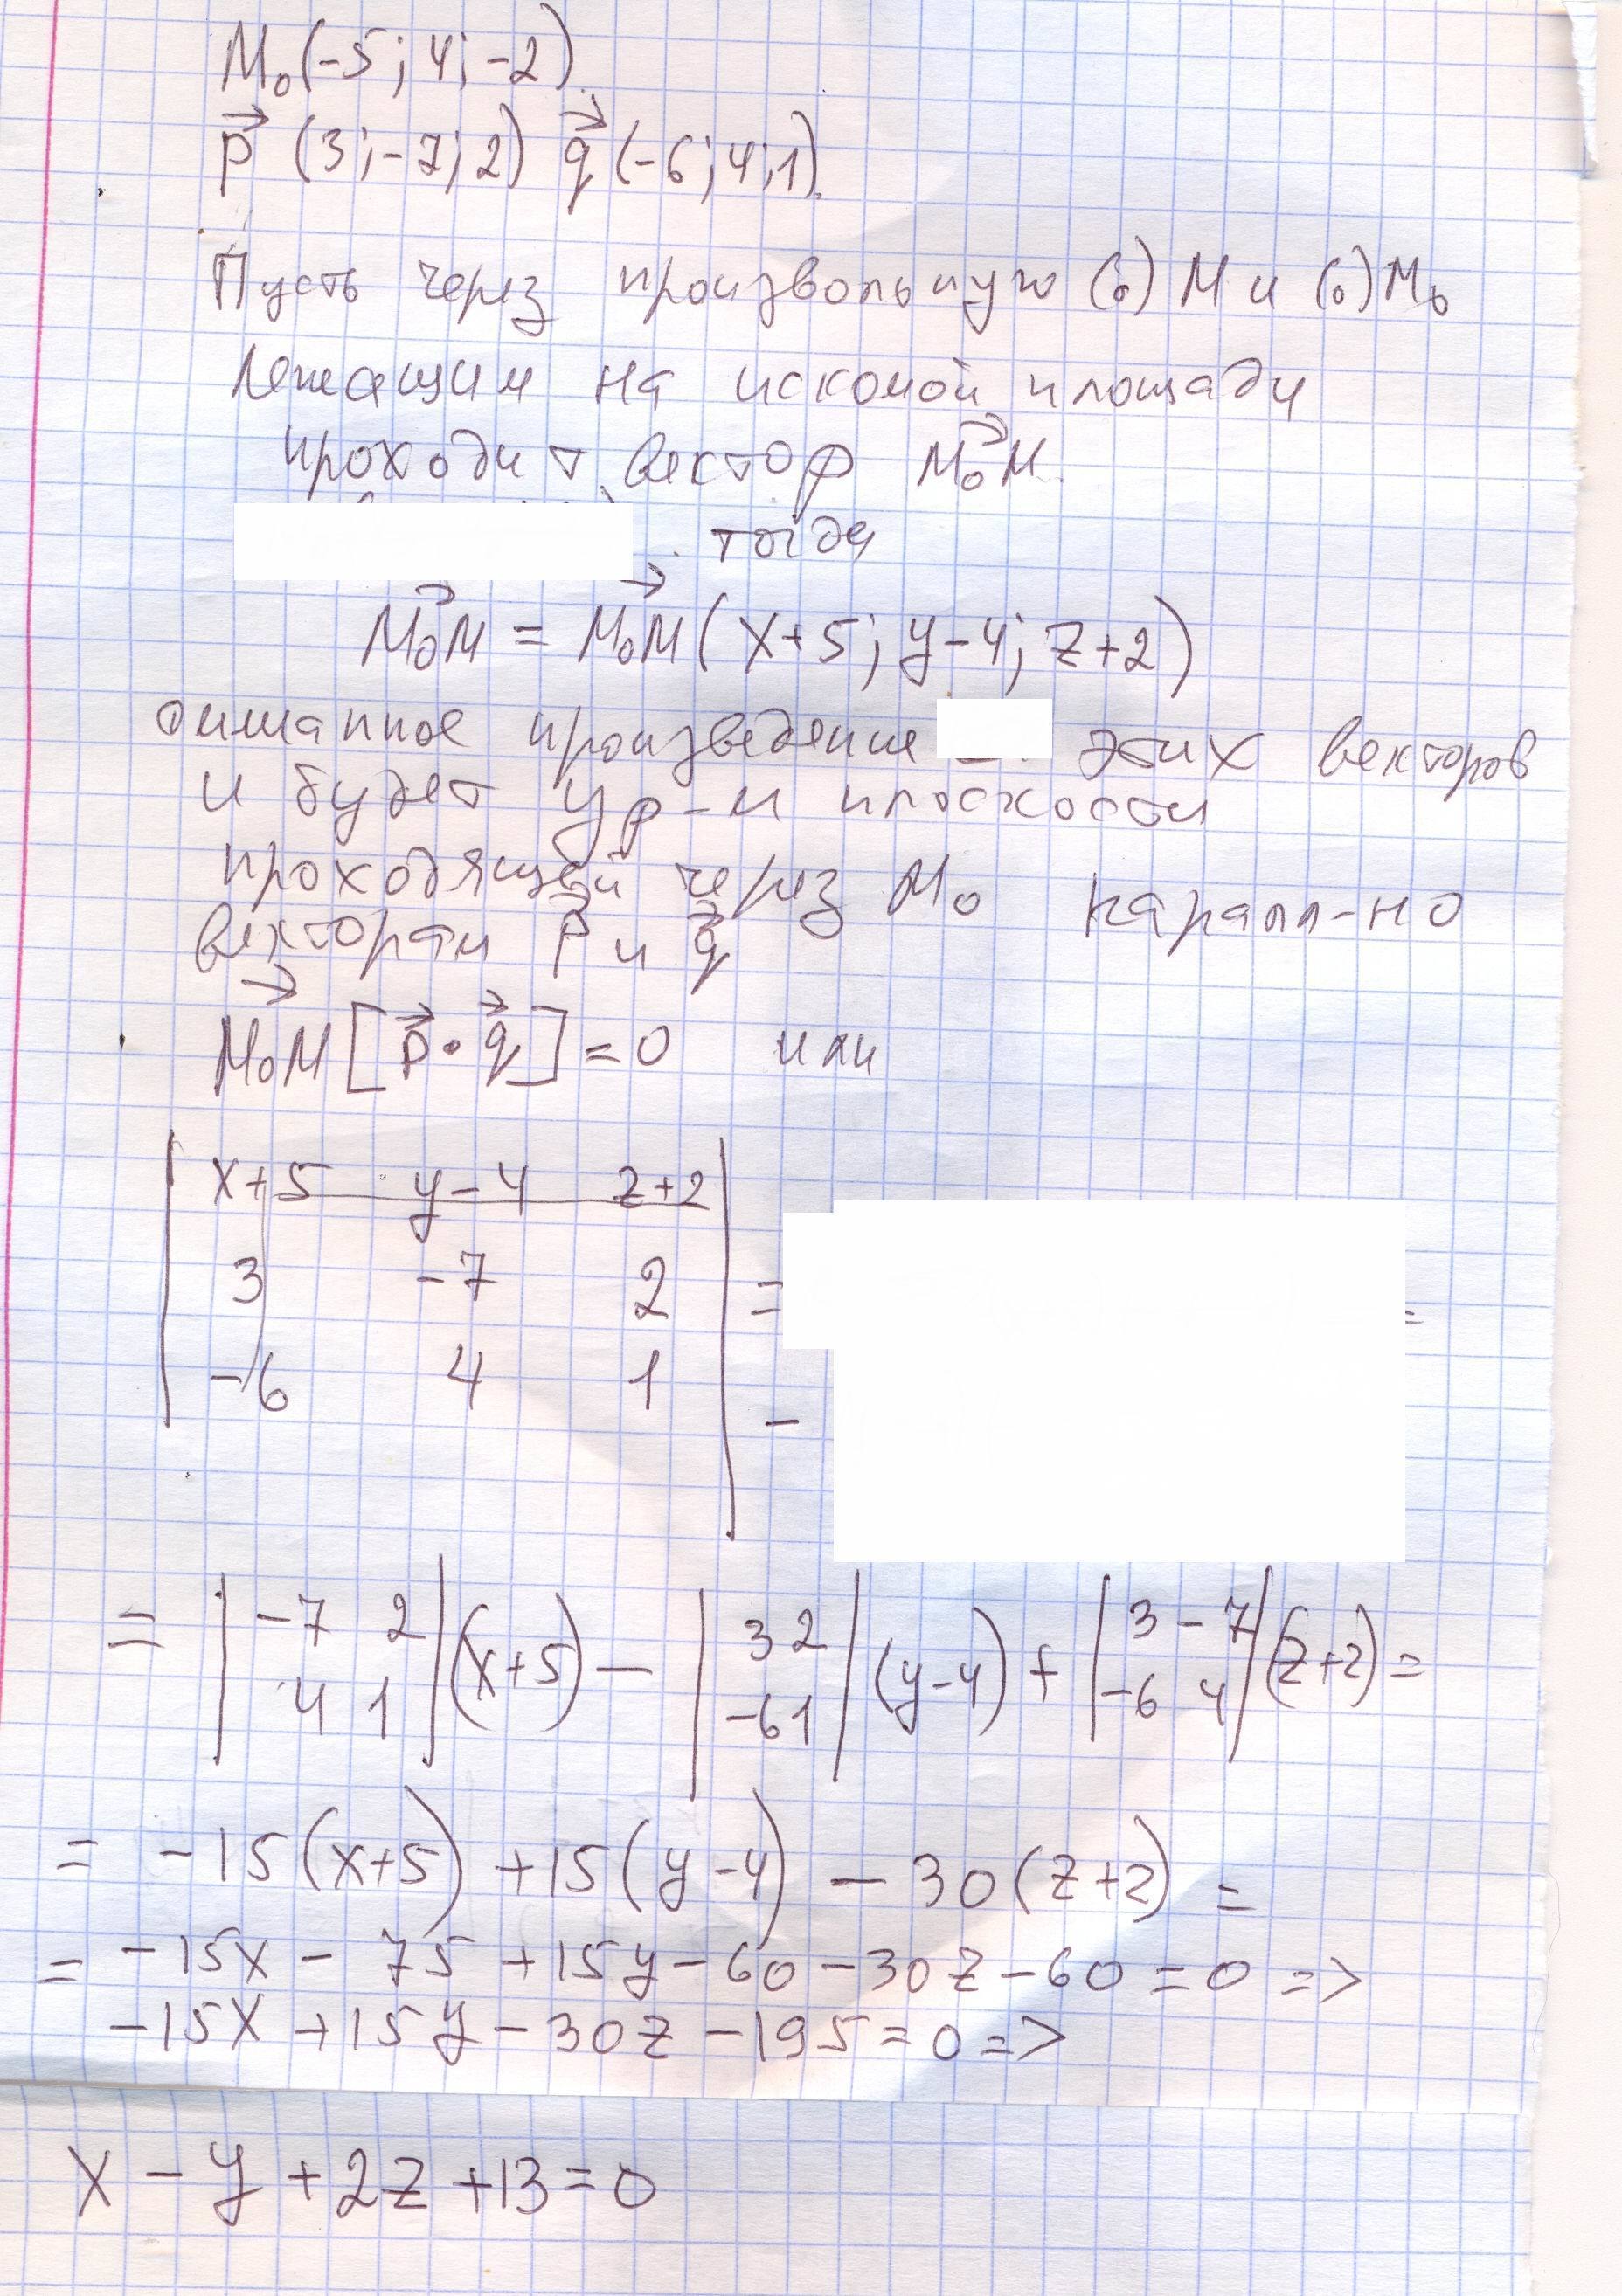 M₀(-5; 4; -2)
p⃗ (3; -7; 2) q⃗ (-6; 4; 1).
Пусть через произвольную (·) M и (·) M₀
лежащим на искомой площади
проходит вектор M₀M⃗.
тогда
M₀M⃗ = M₀M⃗ (x+5; y-4; z+2)
смешанное произведение этих векторов
и будет ур-м плоскости
проходящей через M₀ паралл-но
векторам p⃗ и q⃗
M₀M⃗ [p⃗ · q⃗] = 0 или
| x+5 y-4 z+2 |
| 3 -7 2 | = =
| -6 4 1 | -
= | -7 2 | (x+5) - | 3 2 | (y-4) + | 3 -7 | (z+2) =
| 4 1 | | -6 1 | | -6 4 |
= -15(x+5) +15(y-4) - 30(z+2) =
= -15x - 75 +15y - 60 - 30z - 60 = 0 =>
-15x +15y - 30z - 195 = 0 =>
x - y + 2z + 13 = 0